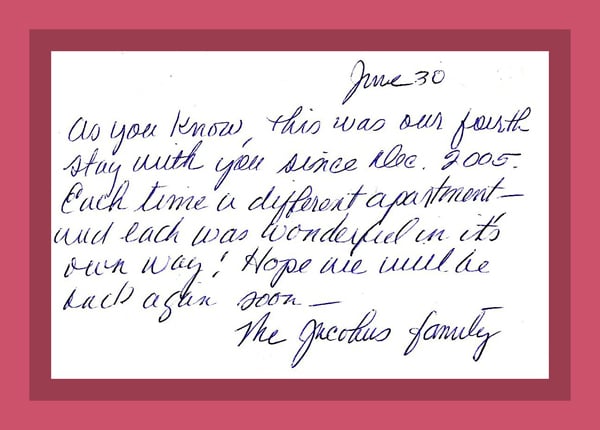 June 30
As you know, this was our fourth
stay with you since Dec. 2005.
Each time a different apartment—
and each was wonderful in it's
own way! Hope we will be
back again soon—
The Jacobus family